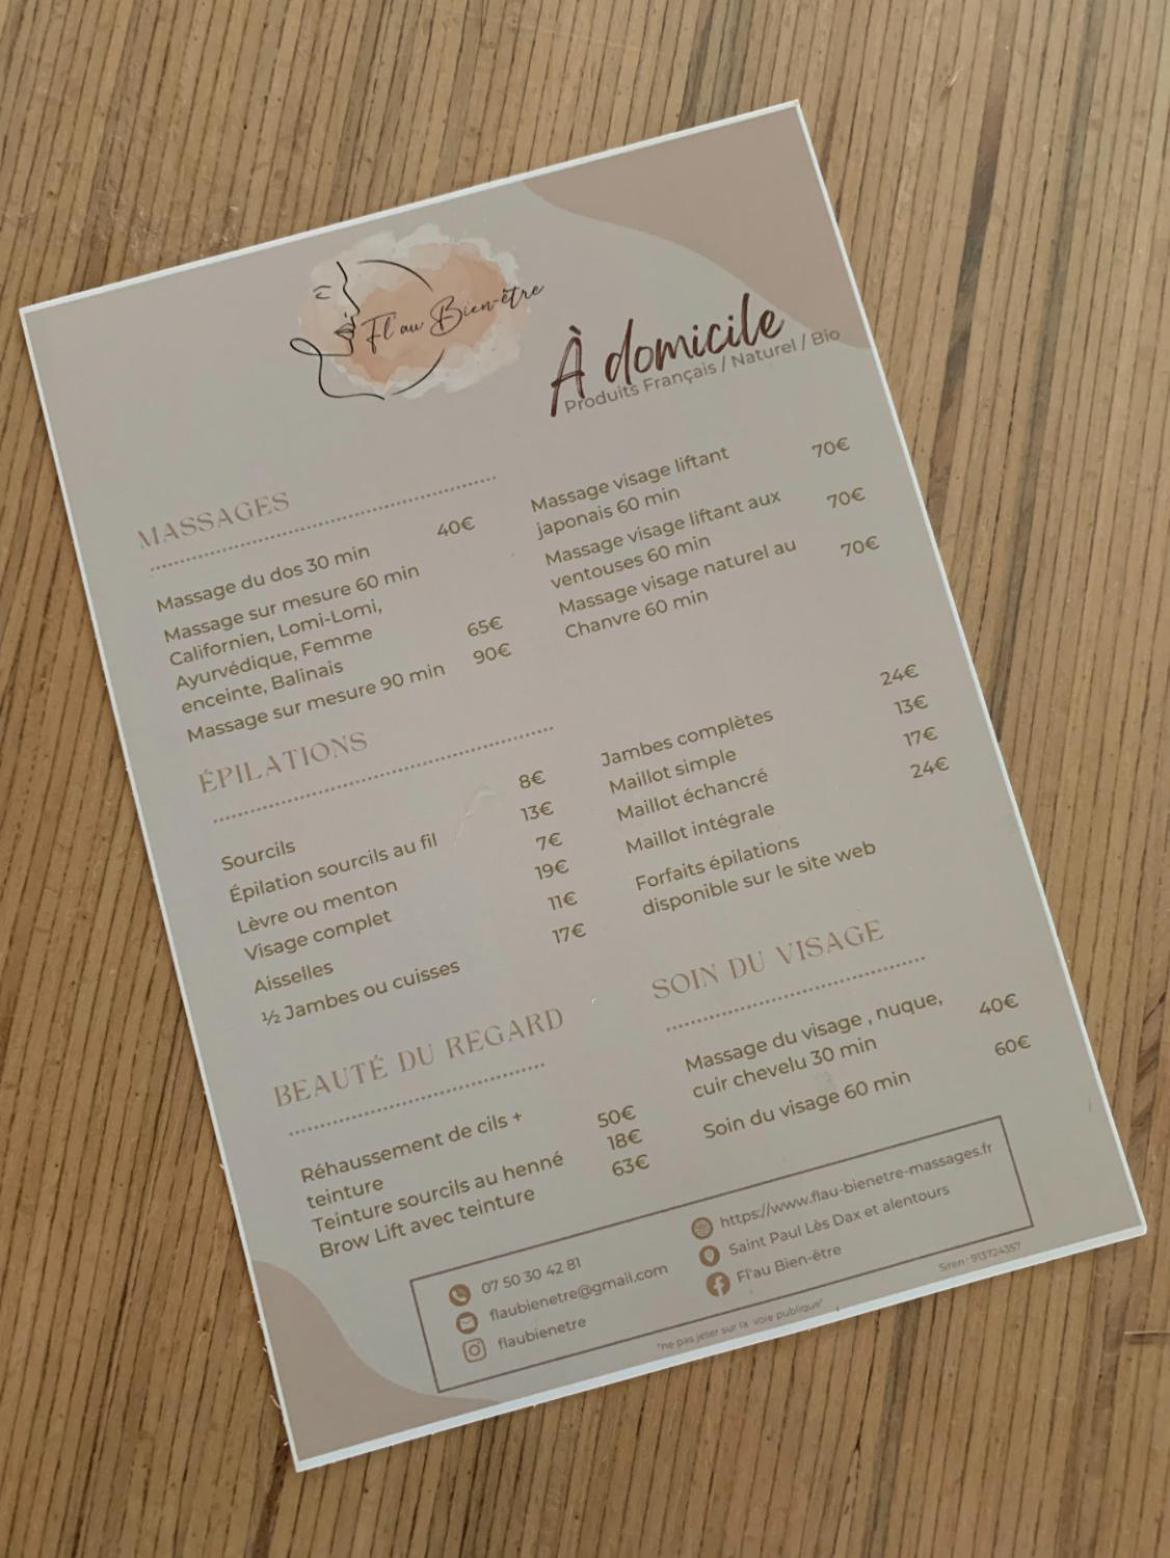 Fl'au Bien-être
À domicile
Produits Français / Naturel / Bio
MASSAGES
Massage du dos 30 min 40€
Massage sur mesure 60 min
Californien, Lomi-Lomi,
Ayurvédique, Femme
enceinte, Balinais 65€
Massage sur mesure 90 min 90€
Massage visage liftant 70€
japonais 60 min
Massage visage liftant aux 70€
ventouses 60 min
Massage visage naturel au 70€
Chanvre 60 min
ÉPILATIONS
Sourcils 8€
Épilation sourcils au fil 13€
Lèvre ou menton 7€
Visage complet 19€
Aisselles 11€
½ Jambes ou cuisses 17€
Jambes complètes 24€
Maillot simple 13€
Maillot échancré 17€
Maillot intégrale 24€
Forfaits épilations
disponible sur le site web
BEAUTÉ DU REGARD
Réhaussement de cils + 50€
teinture
Teinture sourcils au henné 18€
Brow Lift avec teinture 63€
SOIN DU VISAGE
Massage du visage , nuque, 40€
cuir chevelu 30 min
Soin du visage 60 min 60€
07 50 30 42 81
flaubienetre@gmail.com
flaubienetre
https://www.flau-bienetre-massages.fr
Saint Paul Lès Dax et alentours
Fl'au Bien-être
Siren : 913724357
"ne pas jeter sur la voie publique"